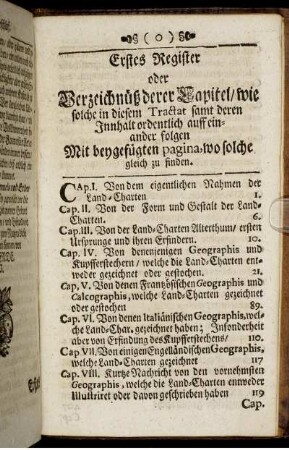 ( 0 )
Erstes Register
oder
Verzeichnüß derer Capitel/ wie
solche in diesem Tractat samt deren
Innhalt ordentlich auff ein-
ander folgen
Mit beygefügten pagina, wo solche
gleich zu finden.
CAp. I. Von dem eigentlichen Nahmen der
Land-Charten 1.
Cap. II. Von der Form und Gestalt der Land-
Charten. 6.
Cap. III. Von der Land-Charten Alterthum/ ersten
Ursprunge und ihren Erfindern. 10.
Cap. IV. Von denenjenigen Geographis und
Kupfferstechern/ welche die Land-Charten ent-
weder gezeichnet oder gestochen. 21.
Cap. V. Von denen Frantzösischen Geographis und
Calcographis, welche Land-Charten gezeichnet
oder gestochen 89.
Cap. VI. Von denen Italiänischen Geographis, wel-
che Land-Char. gezeichnet haben; Insonderheit
aber von Erfindung des Kupfferstechens/ 110.
Cap VII. Von einigen Engelländischen Geographis,
welche Land-Charten gezeichnet 117
Cap. VIII. Kurtze Nachricht von den vornehmsten
Geographis, welche die Land-Charten entweder
Illustriret oder davon geschrieben haben 119
Cap.